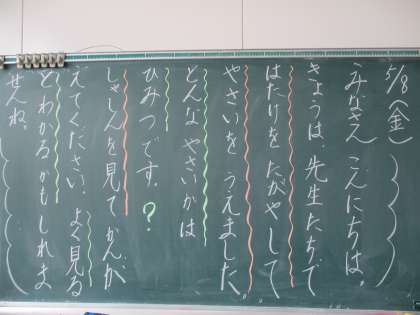 5/8(金)
みなさん こんにちは。
きょうは、先生たちで
はたけを たがやして
やさいを うえました。
どんな やさいかは
ひみつです。?
しゃしんを見て かんが
えてください。よく見る
とわかるかもしれま
せんね。